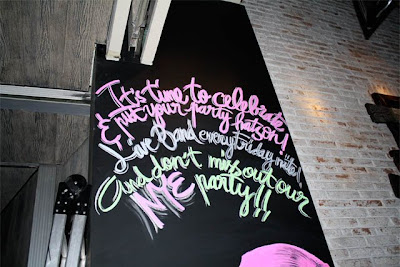 It's time to celebrate
& put your party hats on!
Live Band every friday nite!
And don't miss out our
NYE party!!